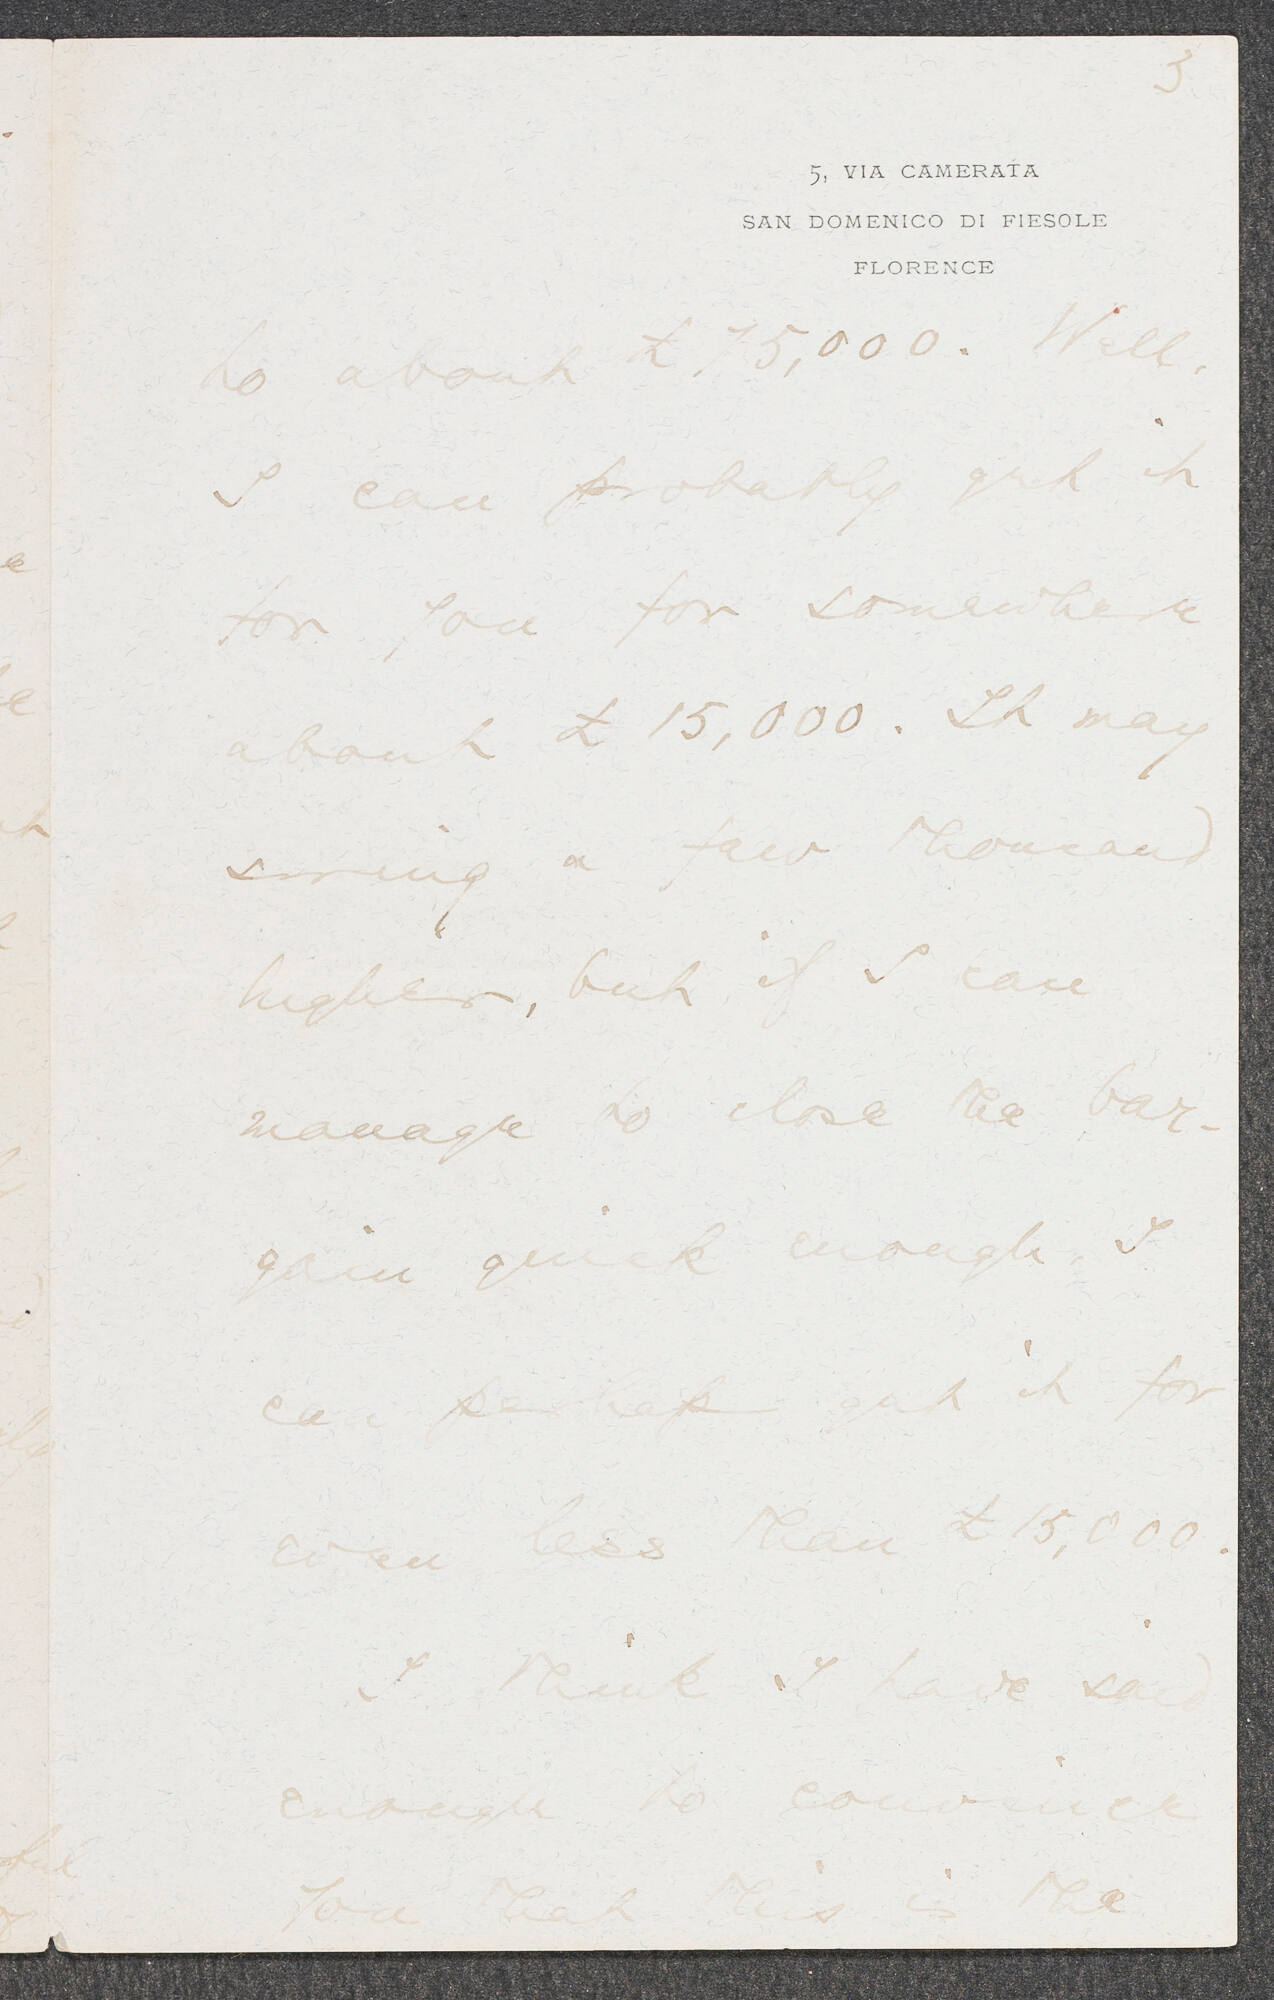 3
5, VIA CAMERATA
SAN DOMENICO DI FIESOLE
FLORENCE
to about £75,000. Well,
I can probably get it
for you for somewhere
about £15,000. It may
swing a few thousand
higher, but if I can
manage to close the bar-
gain quick enough, I
can perhaps get it for
even less than £15,000.
I think I have said
enough to convince
you that this is the